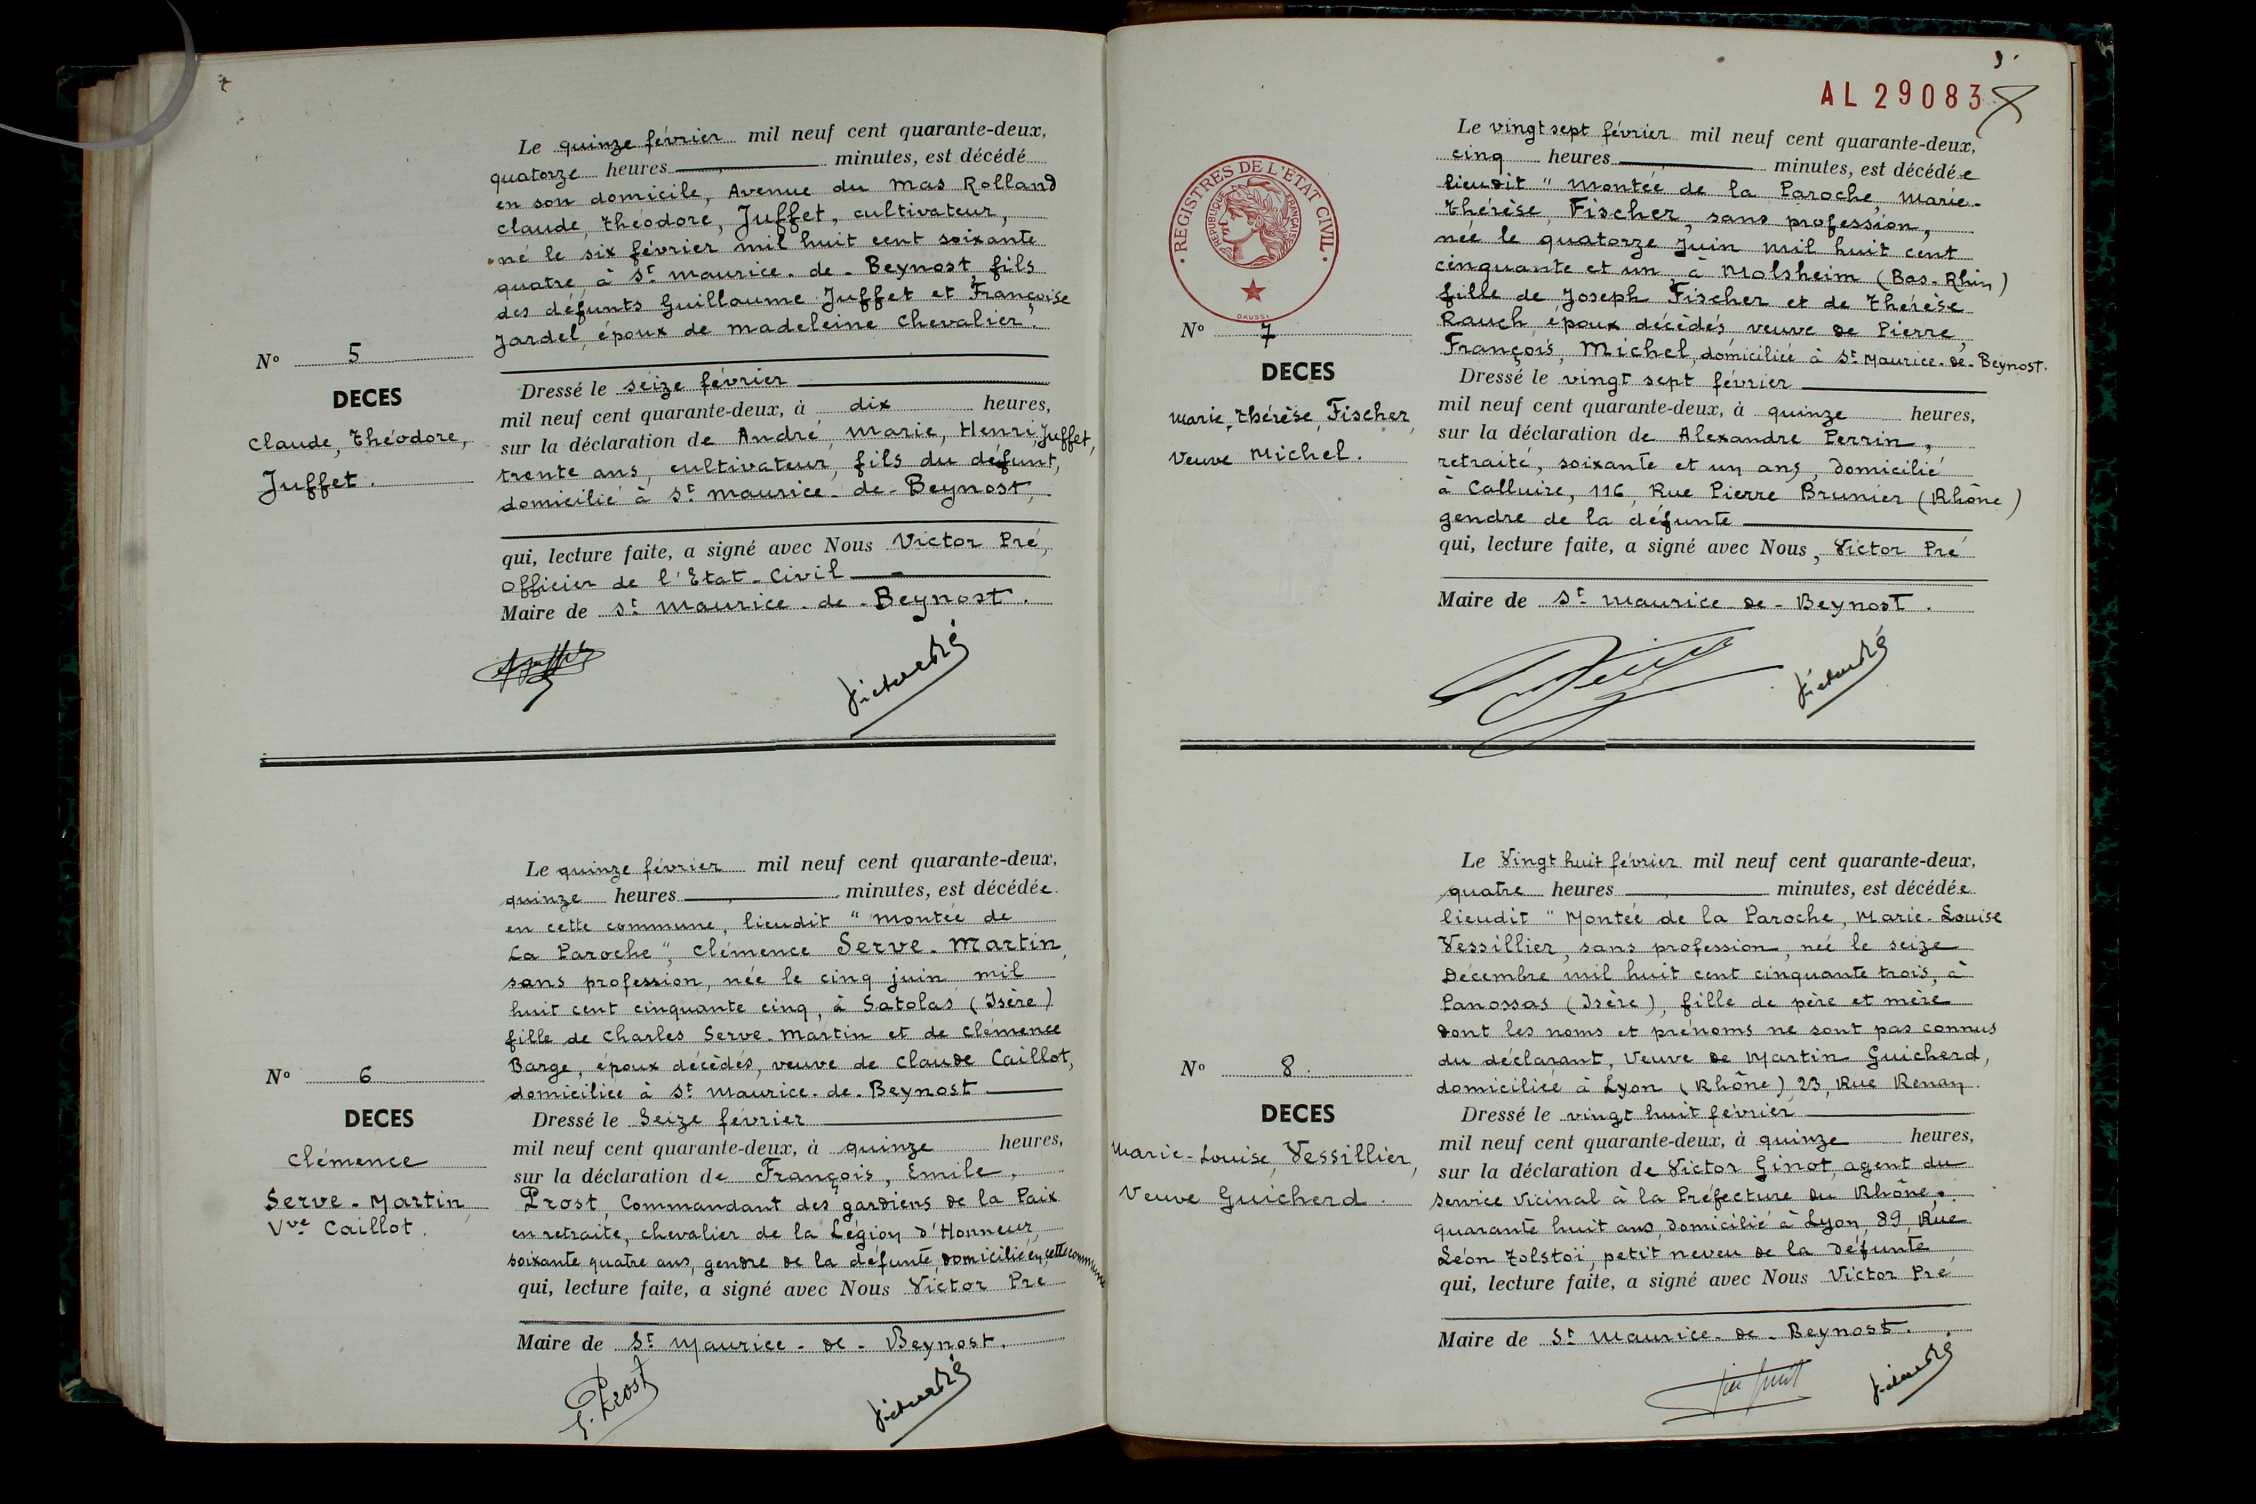 Le quinze février mil neuf cent quarante-deux,
quatorze heures minutes, est décédé
en son domicile, Avenue du Mas Rolland
Claude, Théodore, Juffet, cultivateur,
né le six février mil huit cent soixante
quatre, à St Maurice-de-Beynost, fils
des défunts Guillaume Juffet et Françoise
Jardel, époux de Madeleine Chevalier.
No 5
DECES
Claude, Théodore,
Juffet.
Dressé le seize février
mil neuf cent quarante-deux, à dix heures,
sur la déclaration de André, Marie, Henri, Juffet,
trente ans, cultivateur, fils du défunt,
domicilié à St Maurice-de-Beynost,
qui, lecture faite, a signé avec Nous Victor Pré,
Officier de l'Etat-Civil
Maire de St Maurice-de-Beynost.
Victor Pré
Le quinze février mil neuf cent quarante-deux,
quinze heures minutes, est décédée
en cette commune, lieudit "Montée de
La Paroche", Clémence Serve-Martin,
sans profession, née le cinq juin mil
huit cent cinquante cinq, à Satolas (Isère)
fille de Charles Serve-Martin et de Clémence
Barge, époux décédés, veuve de Claude Caillot,
domiciliée à St Maurice-de-Beynost
No 6
DECES
Clémence
Serve-Martin,
Vve Caillot.
Dressé le Seize février
mil neuf cent quarante-deux, à quinze heures,
sur la déclaration de François, Emile,
Prost, Commandant des gardiens de la Paix
en retraite, chevalier de la Légion d'Honneur,
soixante quatre ans, gendre de la défunte, domicilié en cette commune
qui, lecture faite, a signé avec Nous Victor Pré
Maire de St Maurice-de-Beynost.
E. Prost
Victor Pré
AL 29083
REGISTRES DE L'ETAT CIVIL
REPUBLIQUE FRANÇAISE
DAUSSI
Le vingt sept février mil neuf cent quarante-deux,
cinq heures minutes, est décédée
lieudit "Montée de la Paroche, Marie-
Thérèse, Fischer, sans profession,
née le quatorze Juin mil huit cent
cinquante et un à Molsheim (Bas-Rhin)
fille de Joseph Fischer et de Thérèse
Rauch, époux décédés veuve de Pierre,
François, Michel, domiciliée à St Maurice-de-Beynost.
No 7
DECES
Marie, Thérèse, Fischer,
Veuve Michel.
Dressé le vingt sept février
mil neuf cent quarante-deux, à quinze heures,
sur la déclaration de Alexandre Perrin,
retraité, soixante et un ans, domicilié
à Calluire, 116, Rue Pierre Brunier (Rhône)
gendre de la défunte
qui, lecture faite, a signé avec Nous, Victor Pré
Maire de St Maurice-de-Beynost.
Victor Pré
Le Vingt huit février mil neuf cent quarante-deux,
quatre heures minutes, est décédée
lieudit "Montée de la Paroche, Marie-Louise
Vessillier, sans profession, née le seize
Décembre mil huit cent cinquante trois, à
Panossas (Isère), fille de père et mère
dont les noms et prénoms ne sont pas connus
du déclarant, Veuve de Martin Guicherd,
domiciliée à Lyon (Rhône), 23, Rue Renan.
No 8.
DECES
Marie-Louise, Vessillier,
Veuve Guicherd.
Dressé le vingt huit février
mil neuf cent quarante-deux, à quinze heures,
sur la déclaration de Victor Ginot, agent du
service Vicinal à la Préfecture du Rhône,
quarante huit ans, domicilié à Lyon, 89, Rue
Léon Tolstoï, petit neveu de la défunte
qui, lecture faite, a signé avec Nous Victor Pré
Maire de St Maurice-de-Beynost.
Victor Pré